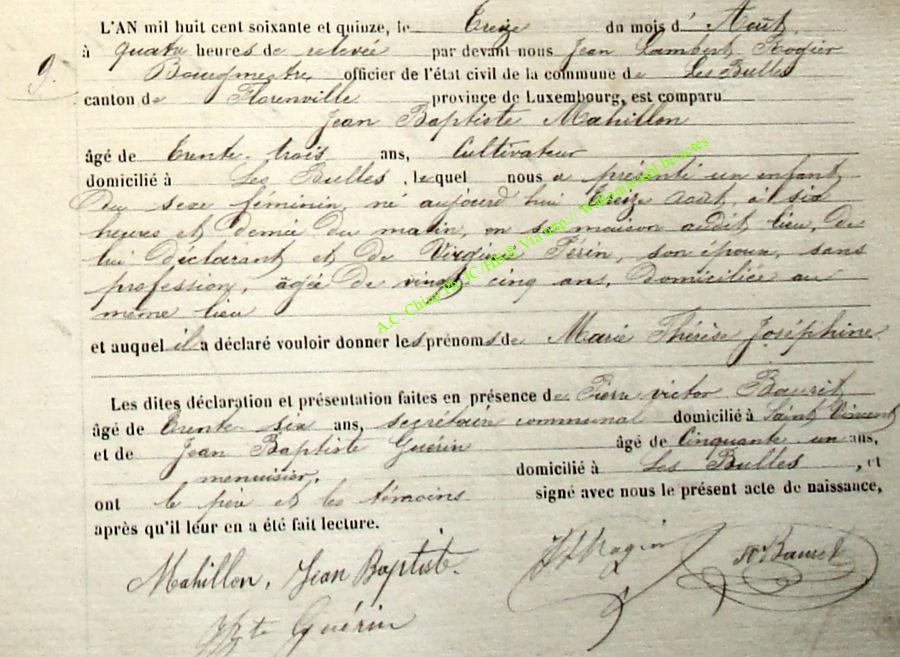 L'AN mil huit cent soixante et quinze, le Treize du mois d' Août
à quatre heures de relevée par devant nous Jean Lambert Rogier
9. Bourgmestre officier de l'état civil de la commune de Les Bulles
canton de Florenville province de Luxembourg, est comparu
Jean Baptiste Mahillon
âgé de trente-trois ans, Cultivateur
domicilié à Les Bulles, lequel nous a présenté un enfant
du sexe féminin, né aujourd'hui treize août, à six
heures et demie du matin, en sa maison audit lieu, de
lui déclarant et de Virginie Périn, son épouse, sans
profession, âgée de vingt cinq ans, domiciliée au
même lieu
et auquel il a déclaré vouloir donner les prénoms de Marie Thérèse Joséphine
Les dites déclaration et présentation faites en présence de Pierre victor Bauret
âgé de trente six ans, secrétaire communal domicilié à Saint Vincent
et de Jean Baptiste Guérin âgé de Cinquante un ans,
menuisier, domicilié à Les Bulles, et
ont le père et les témoins signé avec nous le présent acte de naissance,
après qu'il leur en a été fait lecture.
Mahillon, Jean Baptiste. JL Rogier Bauret
Guérin